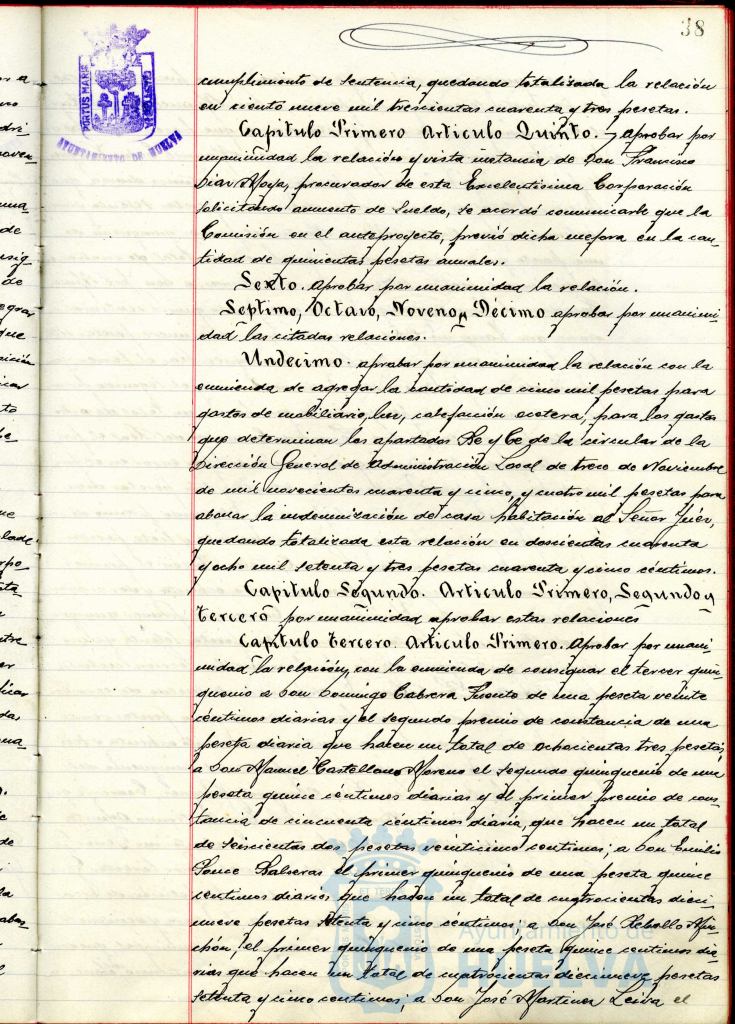 38
PORTUS MARIS
CUSTODIA
AYUNTAMIENTO DE HUELVA
cumplimiento de sentencia, quedando totalizada la relación
en ciento nueve mil trescientas cuarenta y tres pesetas.
Capitulo Primero Articulo Quinto. Aprobar por
unanimidad la relación y vista instancia de Don Francisco
Diaz Moya, procurador de esta Excelentisima Corporación
solicitando aumento de sueldo, se acordó comunicarle que la
Comisión en el anteproyecto, previó dicha mejora en la can-
tidad de quinientas pesetas anuales.
Sexto. Aprobar por unanimidad la relación.
Septimo, Octavo, Noveno y Décimo aprobar por unanimi-
dad las citadas relaciones.
Undecimo. aprobar por unanimidad la relación con la
enmienda de agregar la cantidad de cinco mil pesetas para
gastos de mobiliario, luz, calefacción ecetera, para los gastos
que determinan los apartados Be y Ce de la circular de la
Dirección General de Administración Local de trece de Noviembre
de mil novecientos cuarenta y cinco, y cuatro mil pesetas para
abonar la indemnización de casa habitación al Señor Juez,
quedando totalizada esta relación en doscientas cuarenta
y ocho mil setenta y tres pesetas cuarenta y cinco céntimos.
Capitulo Segundo. Articulo Primero, Segundo y
tercero por unanimidad aprobar estas relaciones
Capitulo tercero. Articulo Primero. Aprobar por unani-
midad la relación, con la enmienda de consignar el tercer quin-
quenio a Don Domingo Cabrera de una peseta veinte
céntimos diarias y el segundo premio de constancia de una
peseta diaria que hacen un total de ochocientas tres pesetas,
a Don Manuel Castellano Moreno el segundo quinquenio de una
peseta quince céntimos diarias y el primer premio de cons-
tancia de cincuenta céntimos diaria, que hacen un total
de seiscientas dos pesetas veinticinco centimos; a Don Emilio
Ponce Balseras el primer quinquenio de una peseta quince
centimos diarias que hacen un total de cuatrocientas dieci-
nueve pesetas setenta y cinco céntimos a Don José Rebollo
el primer quinquenio de una peseta quince centimos dia-
rias que hacen un total de cuatrocientas diecinueve pesetas
setenta y cinco centimos, a Don José Martinez Leiva el
Ayuntamiento de
HUELVA